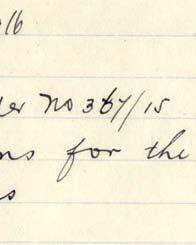 16
er no 367/15
ns for the
s